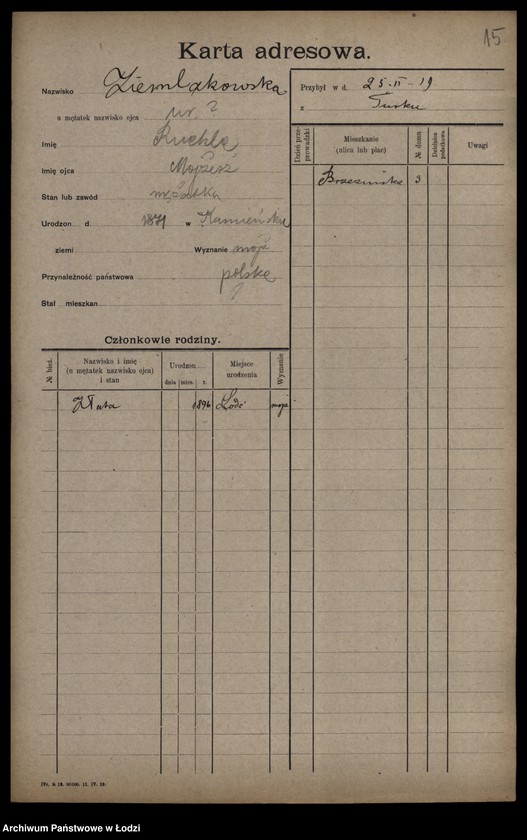 15
Karta adresowa.
Nazwisko Ziemlakowska
u mężatek nazwisko ojca ur. ?
Imię Ruchla
Imię ojca Mojżesz
Stan lub zawód mężatka
Urodzon d. 1871 w Kamieńsku
ziemi Wyznanie mojż
Przynależność państwowa polska
Stał mieszkan ?
Przybył w d. 25-II-19
z Turku
Dzień przeprowadzki
Mieszkanie (ulica lub plac)
№ domu
Dzielnica podatkowa
Uwagi
Brzezińska 3
Członkowie rodziny.
№ bież.
Nazwisko i imię
(u mężatek nazwisko ojca)
i stan
Urodzon
dnia mies. r.
Miejsce
urodzenia
Wyznanie
Złata 1896 Łódź mojż
Archiwum Państwowe w Łodzi